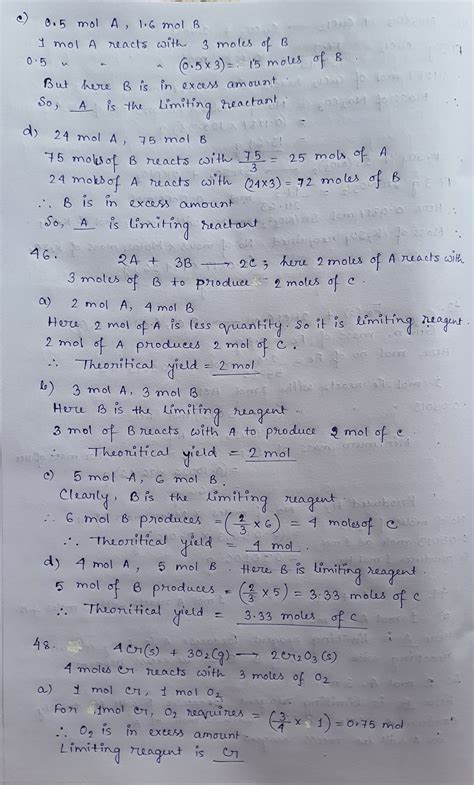 c) 0.5 mol A, 1.6 mol B
1 mol A reacts with 3 moles of B
0.5 " " " (0.5×3)= 15 moles of B
But here B is in excess amount.
So, A is the limiting reactant.
d) 24 mol A, 75 mol B
75 mols of B reacts with 75/3 = 25 mols of A
24 moles of A reacts with (24×3) = 72 moles of B
∴ B is in excess amount
So, A is limiting reactant
46. 2A + 3B → 2C; here 2 moles of A reacts with
3 moles of B to produce 2 moles of C.
a) 2 mol A, 4 mol B
Here 2 mol of A is less quantity. So it is limiting reagent.
2 mol of A produces 2 mol of C.
∴ Theoritical yield = 2 mol
b) 3 mol A, 3 mol B
Here B is the limiting reagent.
3 mol of B reacts with A to produce 2 mol of C
∴ Theoritical yield = 2 mol
c) 5 mol A, 6 mol B.
Clearly, B is the limiting reagent.
∴ 6 mol B produces = (2/3 × 6) = 4 moles of C
∴ Theoritical yield = 4 mol.
d) 4 mol A, 5 mol B. Here B is limiting reagent.
5 mol of B produces = (2/3 × 5) = 3.33 moles of C
∴ Theoritical yield = 3.33 moles of C
48. 4Cr(s) + 3O2(g) → 2Cr2O3(s)
4 moles Cr reacts with 3 moles of O2
a) 1 mol Cr, 1 mol O2
For 1mol Cr, O2 requires = (3/4 × 1) = 0.75 mol
∴ O2 is in excess amount.
Limiting reagent is Cr